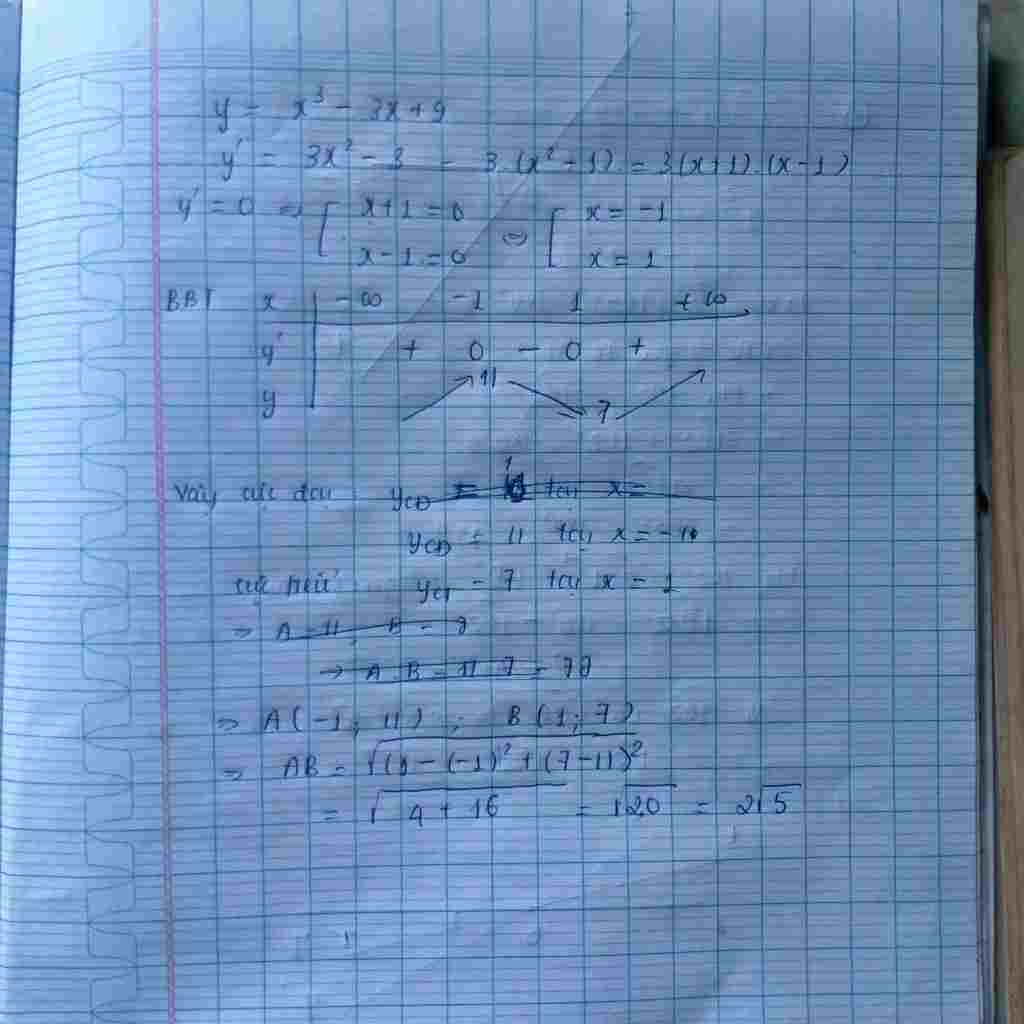 y = x³ - 3x + 9
y' = 3x² - 3 = 3.(x² - 1) = 3(x+1).(x-1)
y' = 0 ⇒ [ x+1 = 0 ⇔ [ x = -1
x - 1 = 0 x = 1
BBT x -∞ -1 1 +∞
y' + 0 - 0 +
11
y 7
Vậy cực đại yCĐ = tại x =
yCĐ = 11 tại x = -1
cực tiểu yCT = 7 tại x = 1
⇒ A = 11, B = 7
→ A.B = 11.7 = 77
⇒ A(-1; 11) ; B(1; 7)
⇒ AB = √(1-(-1)² + (7-11)²
= √4 + 16 = √20 = 2√5